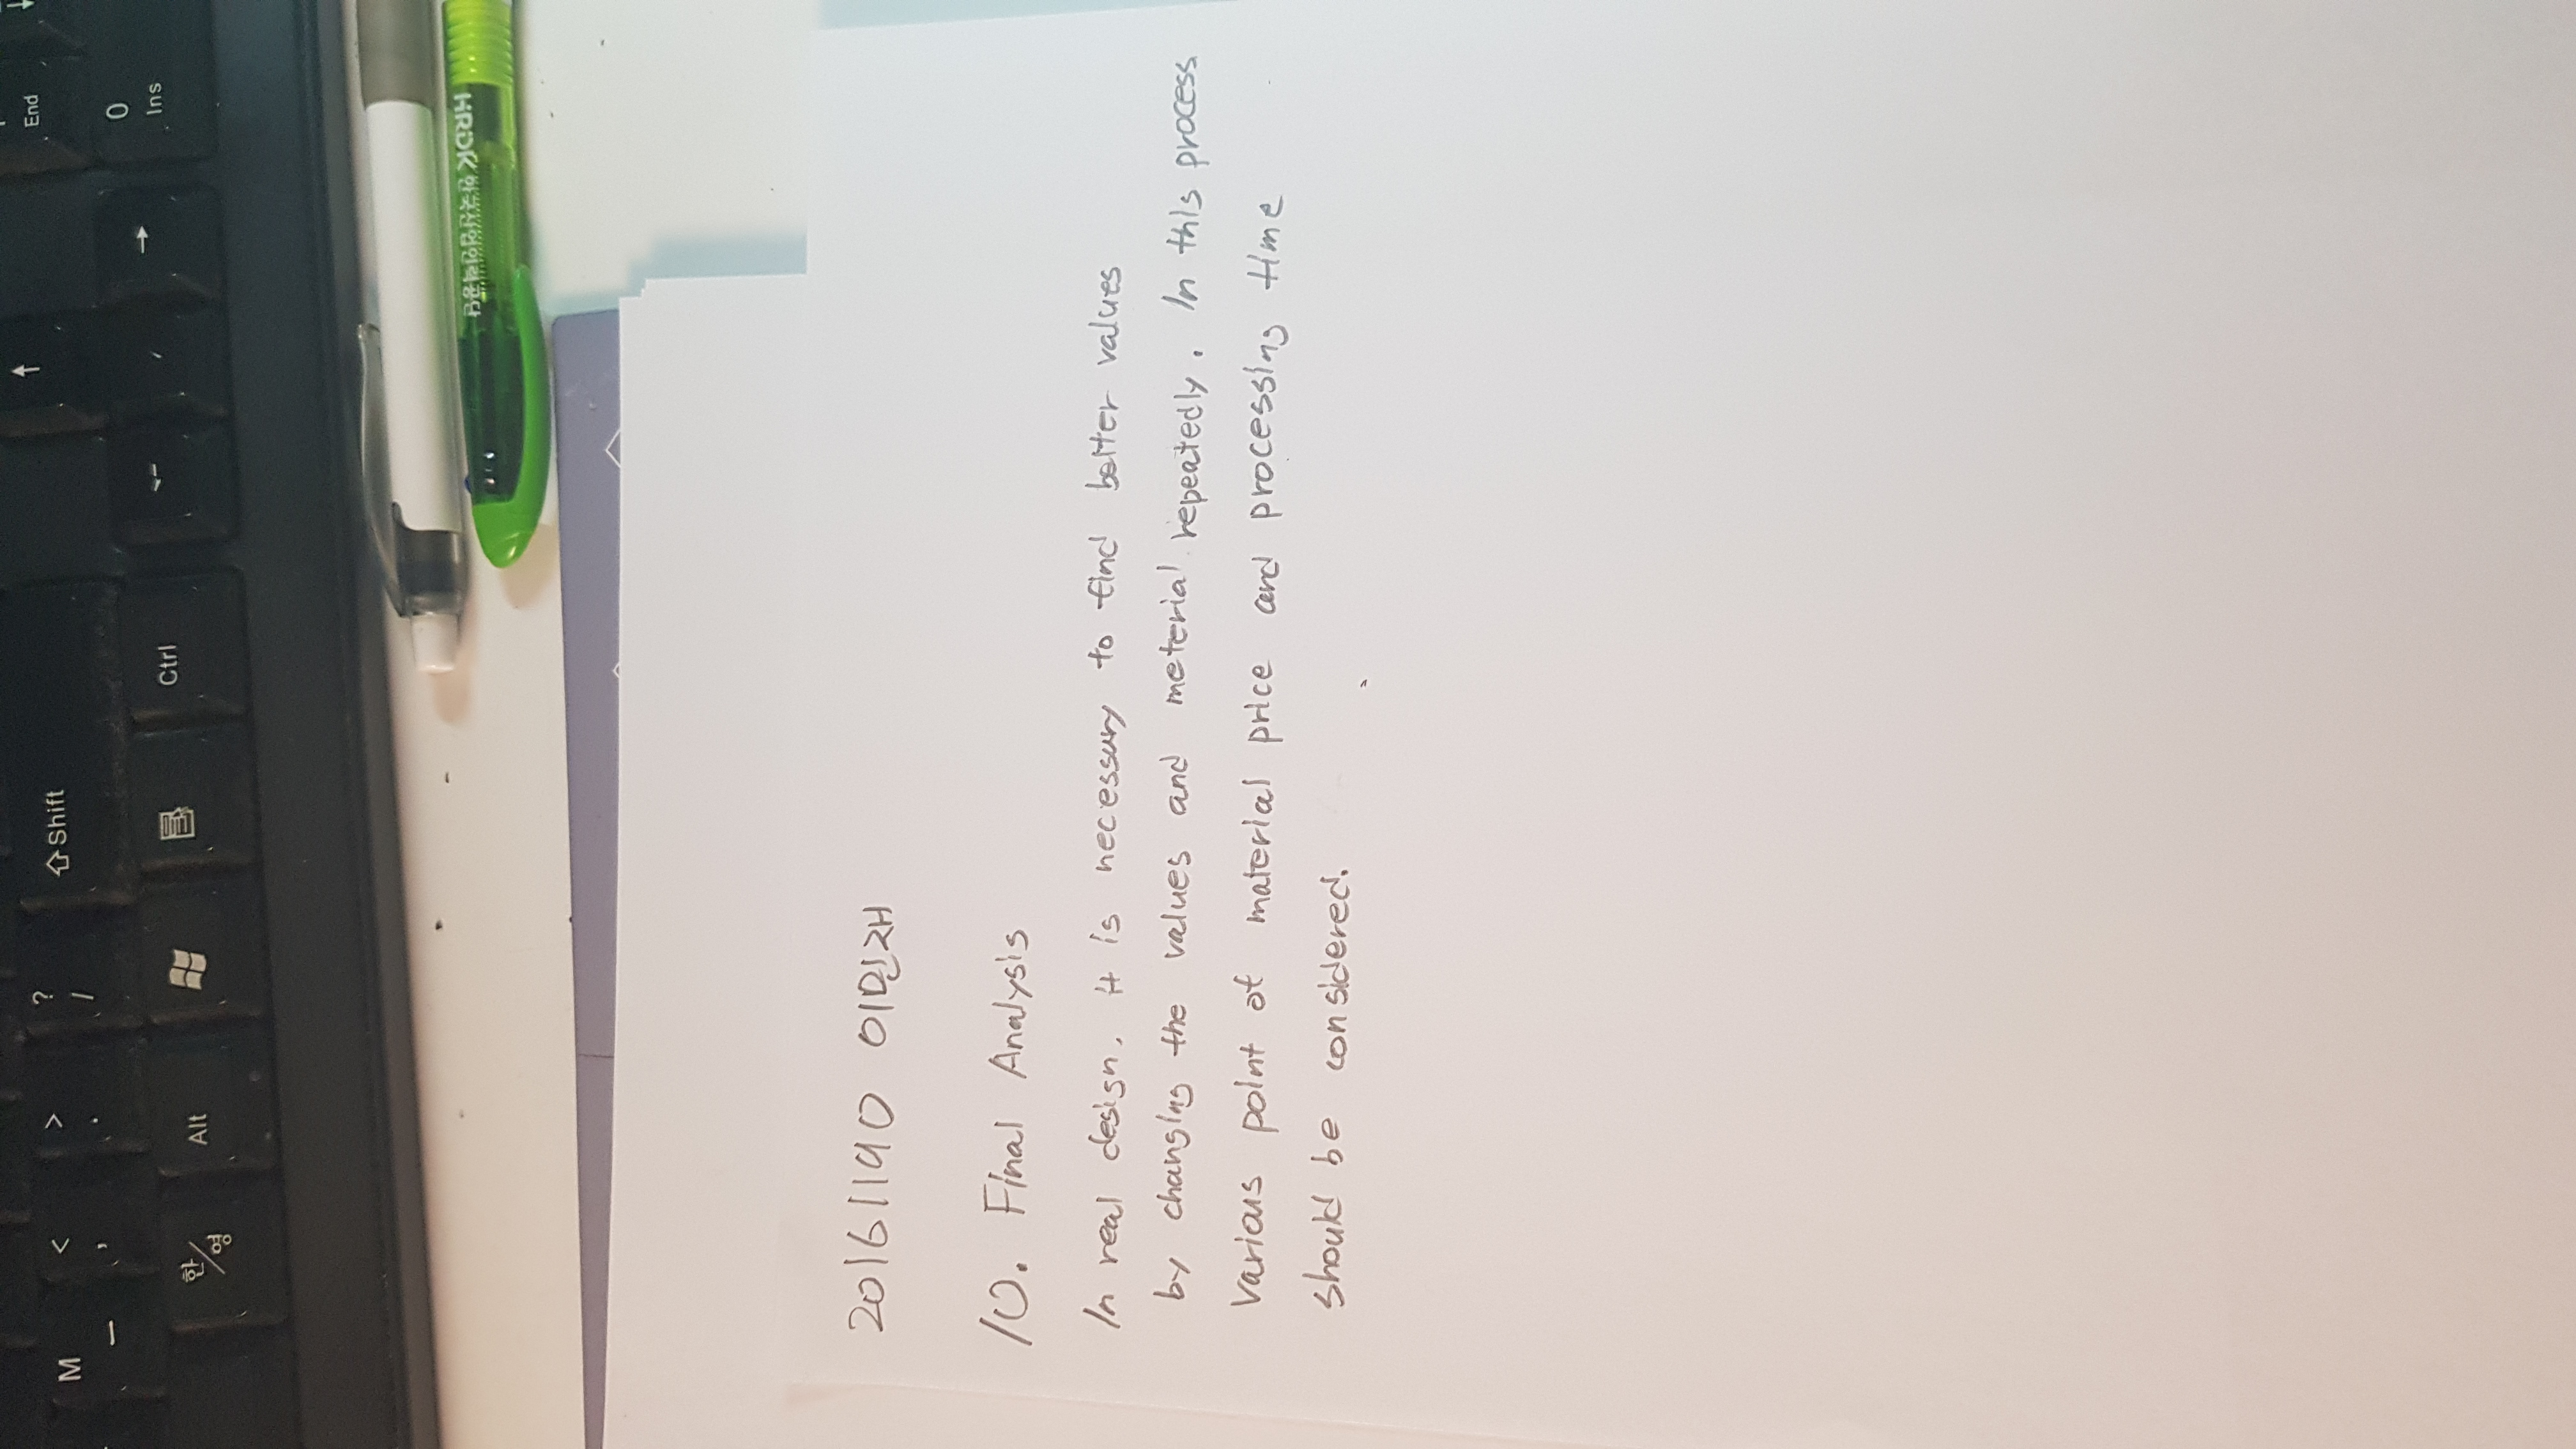 M
<
,
>
.
?
/
Shift
End
한/영
Alt
Ctrl
0
Ins
HRDK 한국산업인력공단
20161190 이민재
10. Final Analysis
In real design, it is necessary to find better values
by changing the values and meterial repeatedly. In this process
various point of material price and processing time
should be considered.